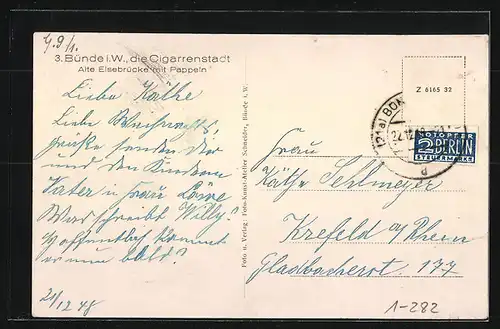 3. Bünde i. W., die Cigarrenstadt
Alte Elsebrücke mit Pappeln
Liebe Käthe
Liebe Weihnachts
grüße senden dir
und den Kindern
Vater u Frau Löwe
Was schreibt Willy?
hoffentlich kommt
er nun bald?
20/12 48
Foto u. Verlag Foto-Kunst-Atelier Schneider, Bünde i. W.
Z 6165 32
(21a)
NOTOPFER
2 BERLIN
STEUERMARKE
d
Frau
Käthe Sehlmeyer
Krefeld a/Rhein
Gladbacherst 177
1-282